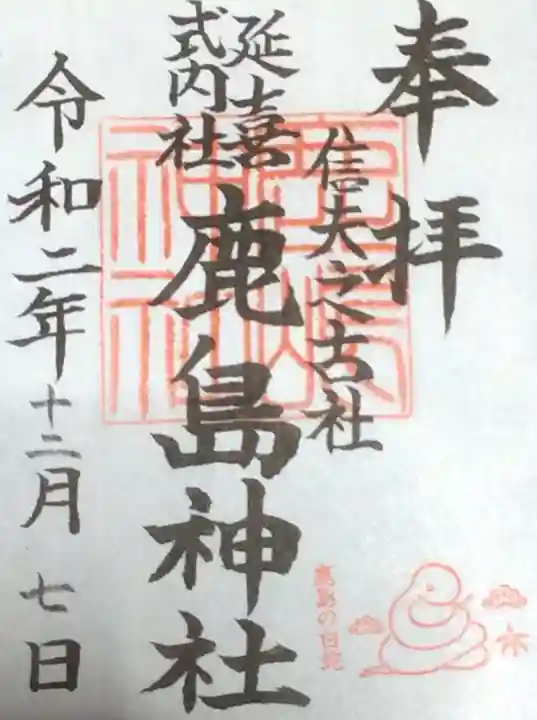 奉拝
信夫之古社
延喜
式内社
鹿島神社
令和二年十二月七日
鹿島の白蛇